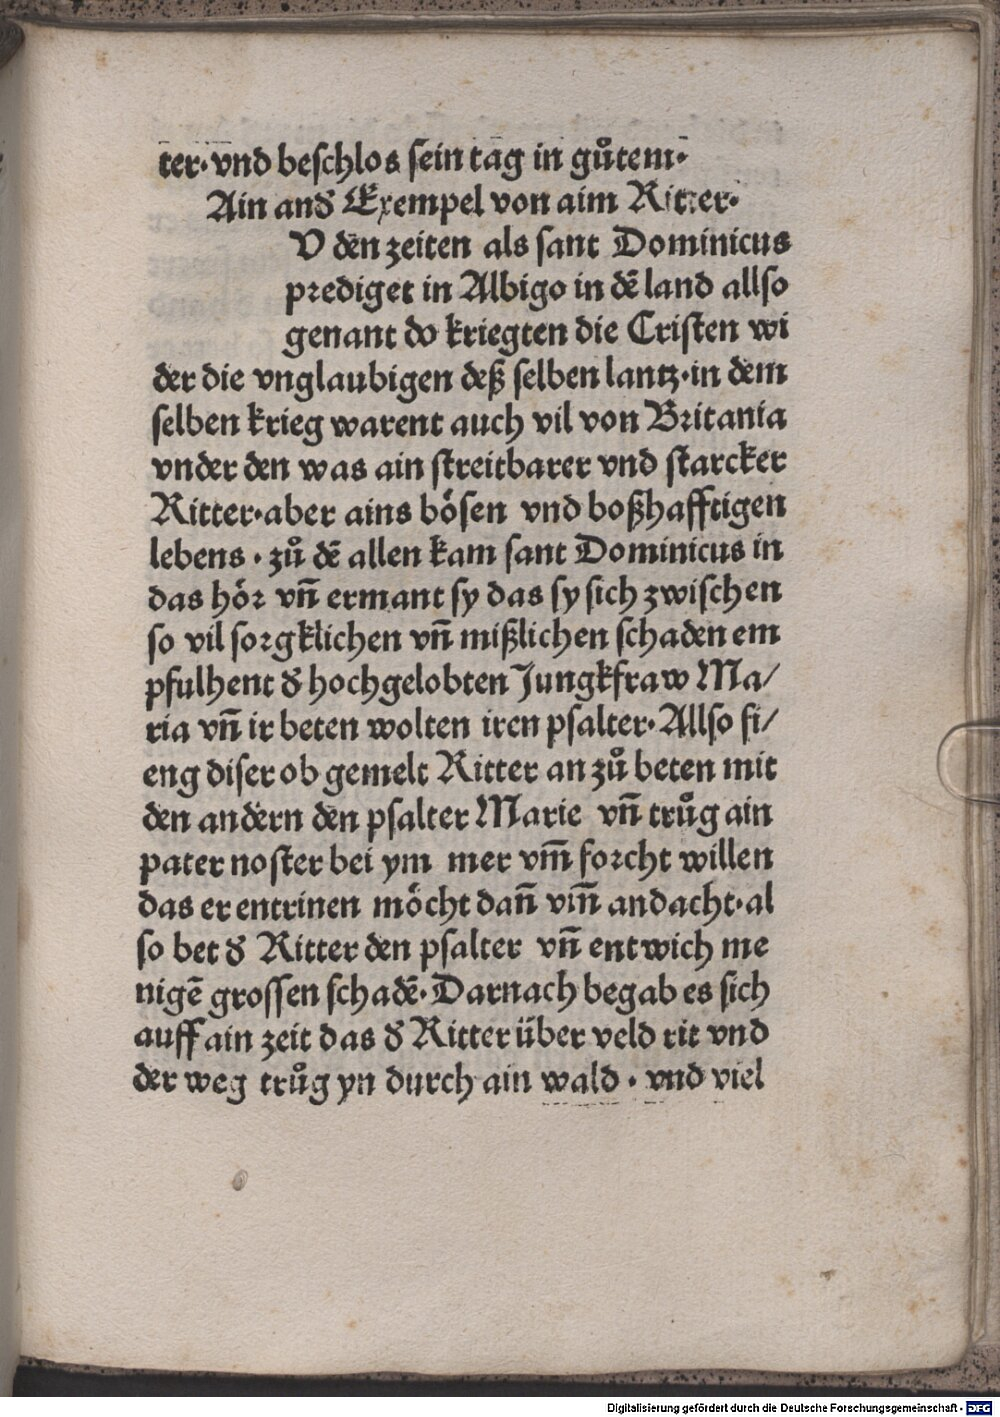 ter·vnd beschlos sein tag in gůtem·
Ain and̕ Exempel von aim Ritter·
V den zeiten als sant Dominicus
prediget in Albigo in dē land allso
genant do kriegten die Cristen wi
der die vnglaubigen deß selben lantz·in dem
selben krieg warent auch vil von Britania
vnder den was ain streitbarer vnd starcker
Ritter·aber ains bösen vnd boßhafftigen
lebens · zů dē allen kam sant Dominicus in
das hör vñ ermant sy das sy sich zwischen
so vil sorgklichen vñ mißlichen schaden em
pfulhent d̕ hochgelobten Jungkfraw Ma/
ria vñ ir beten wolten iren psalter· Allso fi/
eng diser ob gemelt Ritter an zů beten mit
den andern den psalter Marie vñ trůg ain
pater noster bei ym mer vm̄ forcht willen
das er entrinen möcht dañ vm̄ andacht·al
so bet d̕ Ritter den psalter vñ entwich me
nigē grossen schadē· Darnach begab es sich
auff ain zeit das d̕ Ritter über veld rit vnd
der weg trůg yn durch ain wald · vnd viel
Digitalisierung gefördert durch die Deutsche Forschungsgemeinschaft - DFG